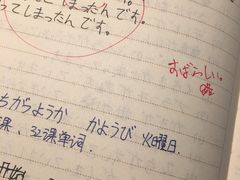 しまったんです。
ってしまったんです。
すばらしい。
ちからようか かようび 火曜日.
课、32课单词.